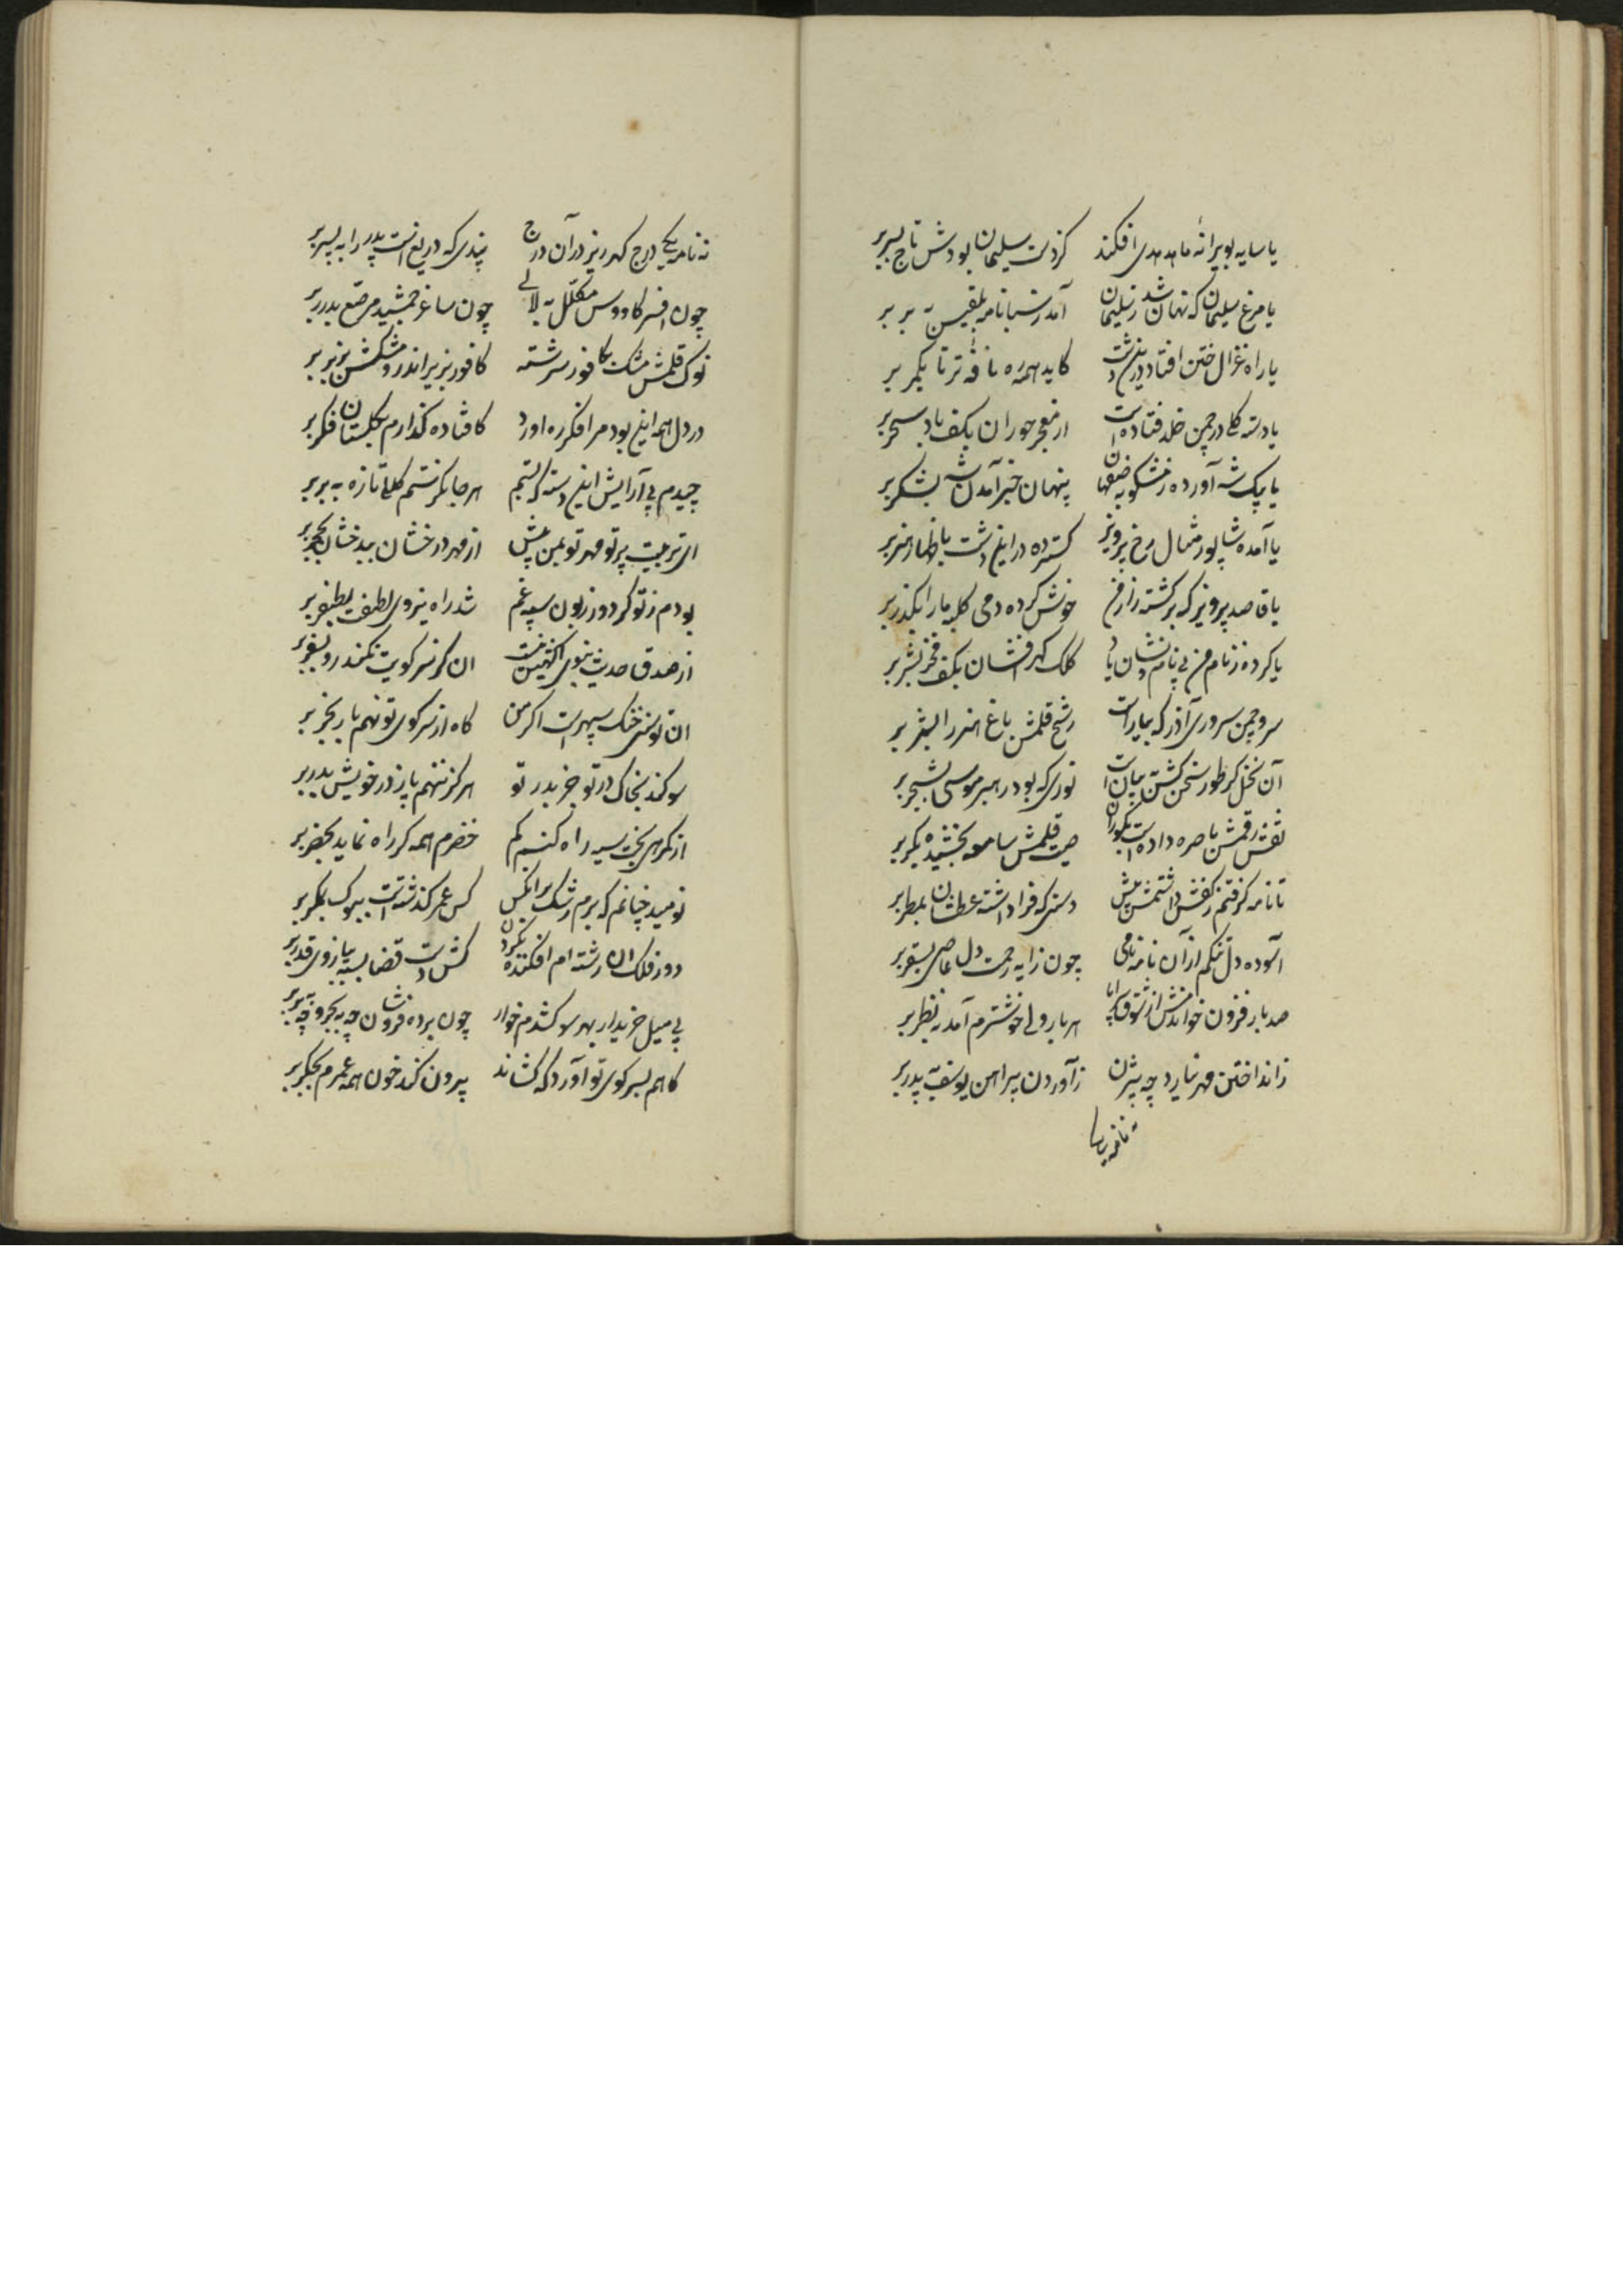 یا سایه بویرانهٔ ما هدهدی افکند کز دست سلیمان بودش تاج بسر بر
یا مرغ سلیمان که نهان شد ز سلیمان آمد ز سبا نامه بلقیس به بر بر
یا راه غزال ختن افتاد درین دشت کاید همه ره نافهٔ تر تا بکمر بر
یا دسته گلی در چمن خلد فتاده است از معجر حوران بکف باد سحر بر
یا پیک شه آورده ز مشکو به صفاهان پنهان خبر آمدن شه بشکر بر
یا آمده شاپور مثال رخ پرویز گسترده در این دشت باظهار هنر بر
یا قاصد پرویز که برگشته ز ارمن خوش کرده دمی کلبه ما را بگذر بر
یا کرده ز نام من بی نام و نشان یاد کلک گهرافشان بکف فخر بشر بر
سرو چمن سروری آذر که بیاراست رشح قلمش باغ هنر را بثمر بر
آن نخل که طور سخن گشت بیان است نوری که بود رهبر موسی بشجر بر
نقش رقمش باصره داده است بکوران صیت قلمش سامعه بخشیده بکر بر
تا نامه گرفتم ز کفش داشتمش پیش دستی که فرا داشته عطشان بمطر بر
آسوده دل تنگم از آن نامه نامی چون ز آیه رحمت دل عاصی بسقر بر
صد بار فزون خواندمش از شوق سراپا هر بار ولی خوشترم آمد به نظر بر
ز انداختن مهر نیارد چه بیژن ز آوردن پیراهن یوسف به پدر بر
نه نامه یکی درج گهرریز در آن درج پندی که دریغ است پدر را به پسر بر
چون افسر کاووس مکلل به لآلی چون ساغر جمشید مرصع بدرر بر
نوک قلمش مشک بکافور سرشته کافور بزیر اندر و مشکش بزبر بر
در دل همه این بود مرا فکر ره آورد کافتاده گذارم بگلستان فکر بر
چیدم پی آرایش این دسته که بستم هر جا نگرستم گلی تازه به بر بر
ای تربیت پرتو مهر تو بمن بیش از مهر درخشان ببدخشان بحجر بر
بودم ز تو گر دور زبون سپه غم شد راه نیروی لطف بظفر بر
از صدق حدیث نبوی آگهیم نیست ان کز سر کویت نکند رو بسفر بر
ان توسنی خنگ سپهر است اگر من گاه از سر کوی تو نهم بار بخر بر
سوگند بخاک در تو جز بدر تو هرگز ننهم پا ز در خویش بدر بر
از گمرهی بخت سیه راه کنم گم خضرم همه گر راه نماید بخضر بر
نومید چنانم که برم رشک بر آنکس کس عمر گذشته است ببوک و بمگر بر
دور فلک ان رشته ام افکنده بگردن کش دست قضا بسته ببازوی قدر بر
بی میل خریدار بهر سو کشدم خوار چون برده فروشان چه به بحر و چه به بر بر
گاهم بسر کوی تو آورد که کشاند بیرون کند خون همه عمرم بجگر بر
نه نامه یکی